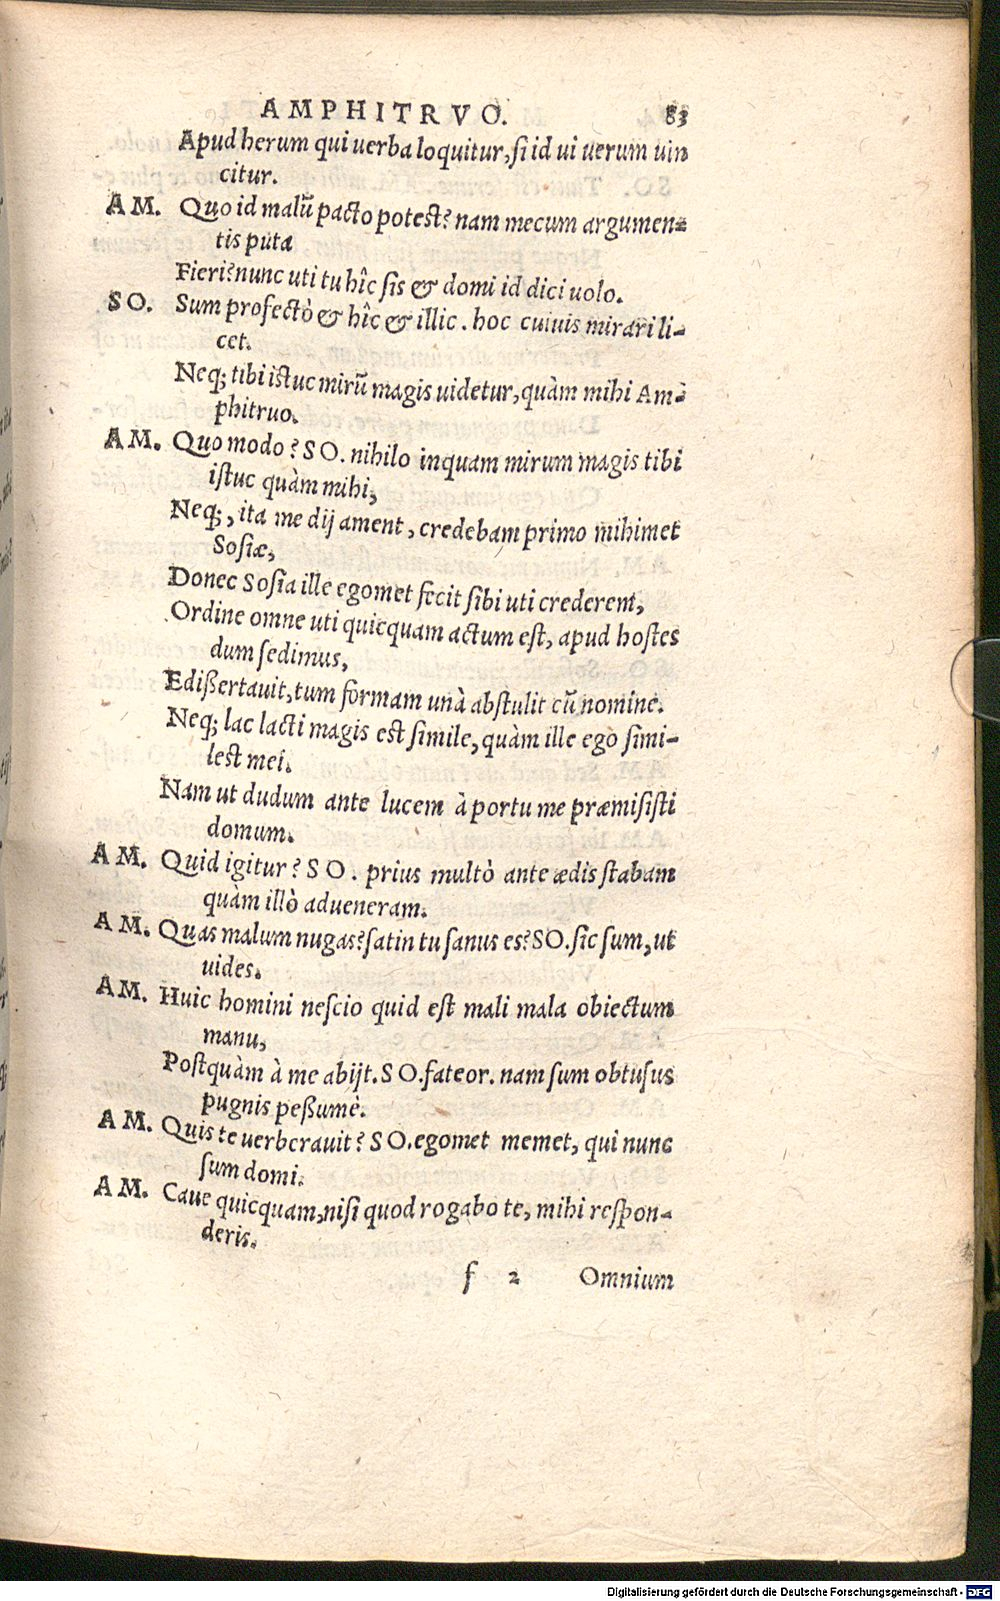 AMPHITRVO. 83
Apud herum qui uerba loquitur, si id ui uerum uin
citur.
AM. Quo id malũ pacto potest? nam mecum argumen=
tis puta
Fieri? nunc uti tu hîc sis & domi id dici uolo.
SO. Sum profectò & hîc & illic. hoc cuiuis mirari li-
cet.
Neq; tibi istuc mirũ magis uidetur, quàm mihi Am=
phitruo.
AM. Quo modo? SO. nihilo inquam mirum magis tibi
istuc quàm mihi,
Neq;, ita me dij ament, credebam primo mihimet
Sosiæ,
Donec Sosia ille egomet fecit sibi uti crederem,
Ordine omne uti quicquam actum est, apud hostes
dum sedimus,
Edißertauit, tum formam unà abstulit cũ nomine.
Neq; lac lacti magis est simile, quàm ille ego simi-
lest mei.
Nam ut dudum ante lucem à portu me præmisisti
domum.
AM. Quid igitur? SO. prius multò ante ædis stabam
quàm illò adueneram.
AM. Quas malum nugas? satin tu sanus es? SO. sic sum, ut
uides.
AM. Huic homini nescio quid est mali mala obiectum
manu,
Postquàm à me abijt. SO. fateor. nam sum obtusus
pugnis peßumè.
AM. Quis te uerberauit? SO. egomet memet, qui nunc
sum domi.
AM. Caue quicquam, nisi quod rogabo te, mihi respon-
deris.
f 2 Omnium
Digitalisierung gefördert durch die Deutsche Forschungsgemeinschaft - DFG